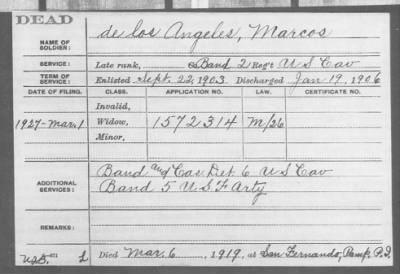 DEAD
NAME OF SOLDIER: de los Angeles, Marcos
SERVICE: Late rank, Band 2 Reg't U S Cav
TERM OF SERVICE: Enlisted Sept. 22, 1903. Discharged Jan 19, 1906
DATE OF FILING. CLASS. APPLICATION NO. LAW. CERTIFICATE NO.
Invalid,
1927-Mar. 1 Widow, 1572314 M/26
Minor,
ADDITIONAL SERVICES: Band and Cas Det 6 U S Cav
Band 5 U S F Arty
REMARKS:
Died Mar. 6, 1919, at San Fernando, Pamp. P.I.